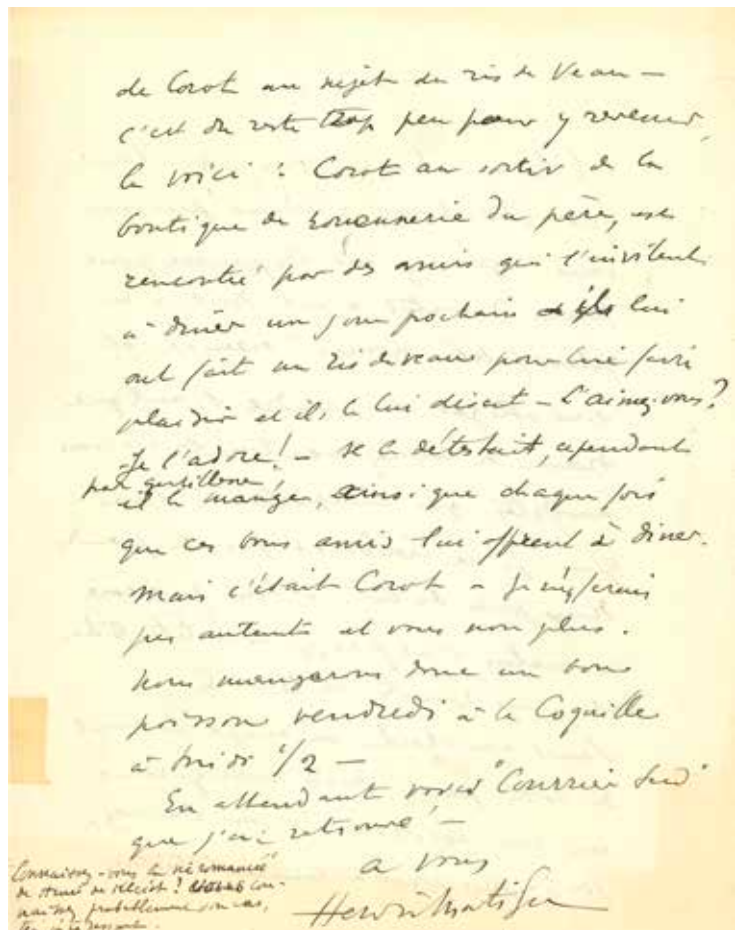 de Corot au sujet du ris de Veau –
c'est du reste trop peu pour y revenir,
la voici : Corot au sortir de la
boutique de rouennerie du père, est
rencontré par des amis qui l'invitent
à dîner un jour prochain et ils lui
ont fait un ris de veau pour lui faire
plaisir et ils le lui disent – L'aimez-vous?
Je l'adore! – Il le détestait, cependant
par gentillesse,
il le mangea, ainsi que chaque fois
que ces bons amis lui offrent à dîner.
Mais c'était Corot – Je n'en ferais
pas autant et vous non plus.
Nous mangerons donc un bon
poisson vendredi à la Coquille
à midi 1/2 –
En attendant voici "Courrier Sud"
que j'ai retrouvé! –
a vous
Henri Matisse
Connaissez-vous la vie romancée
de de Kleist ? con-
naissez probablement son cas,